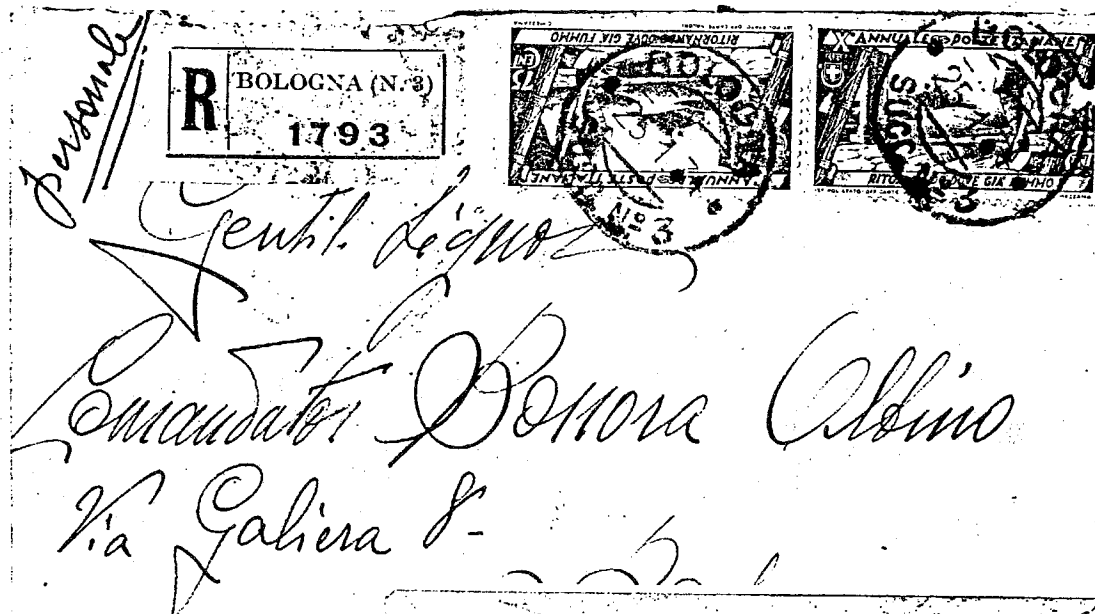 Personale
R
BOLOGNA (N. 3)
1793
RITORNANDO DOVE GIÀ FUMMO
ANNUALE POSTE ITALIANE
BOLOGNA
Nº 3
X ANNUALE POSTE ITALIANE
RITORNANDO DOVE GIÀ FUMMO
SUCC. Nº 3
Gentil. Signor
Comandator Bonora Albino
Via Galiera 8-